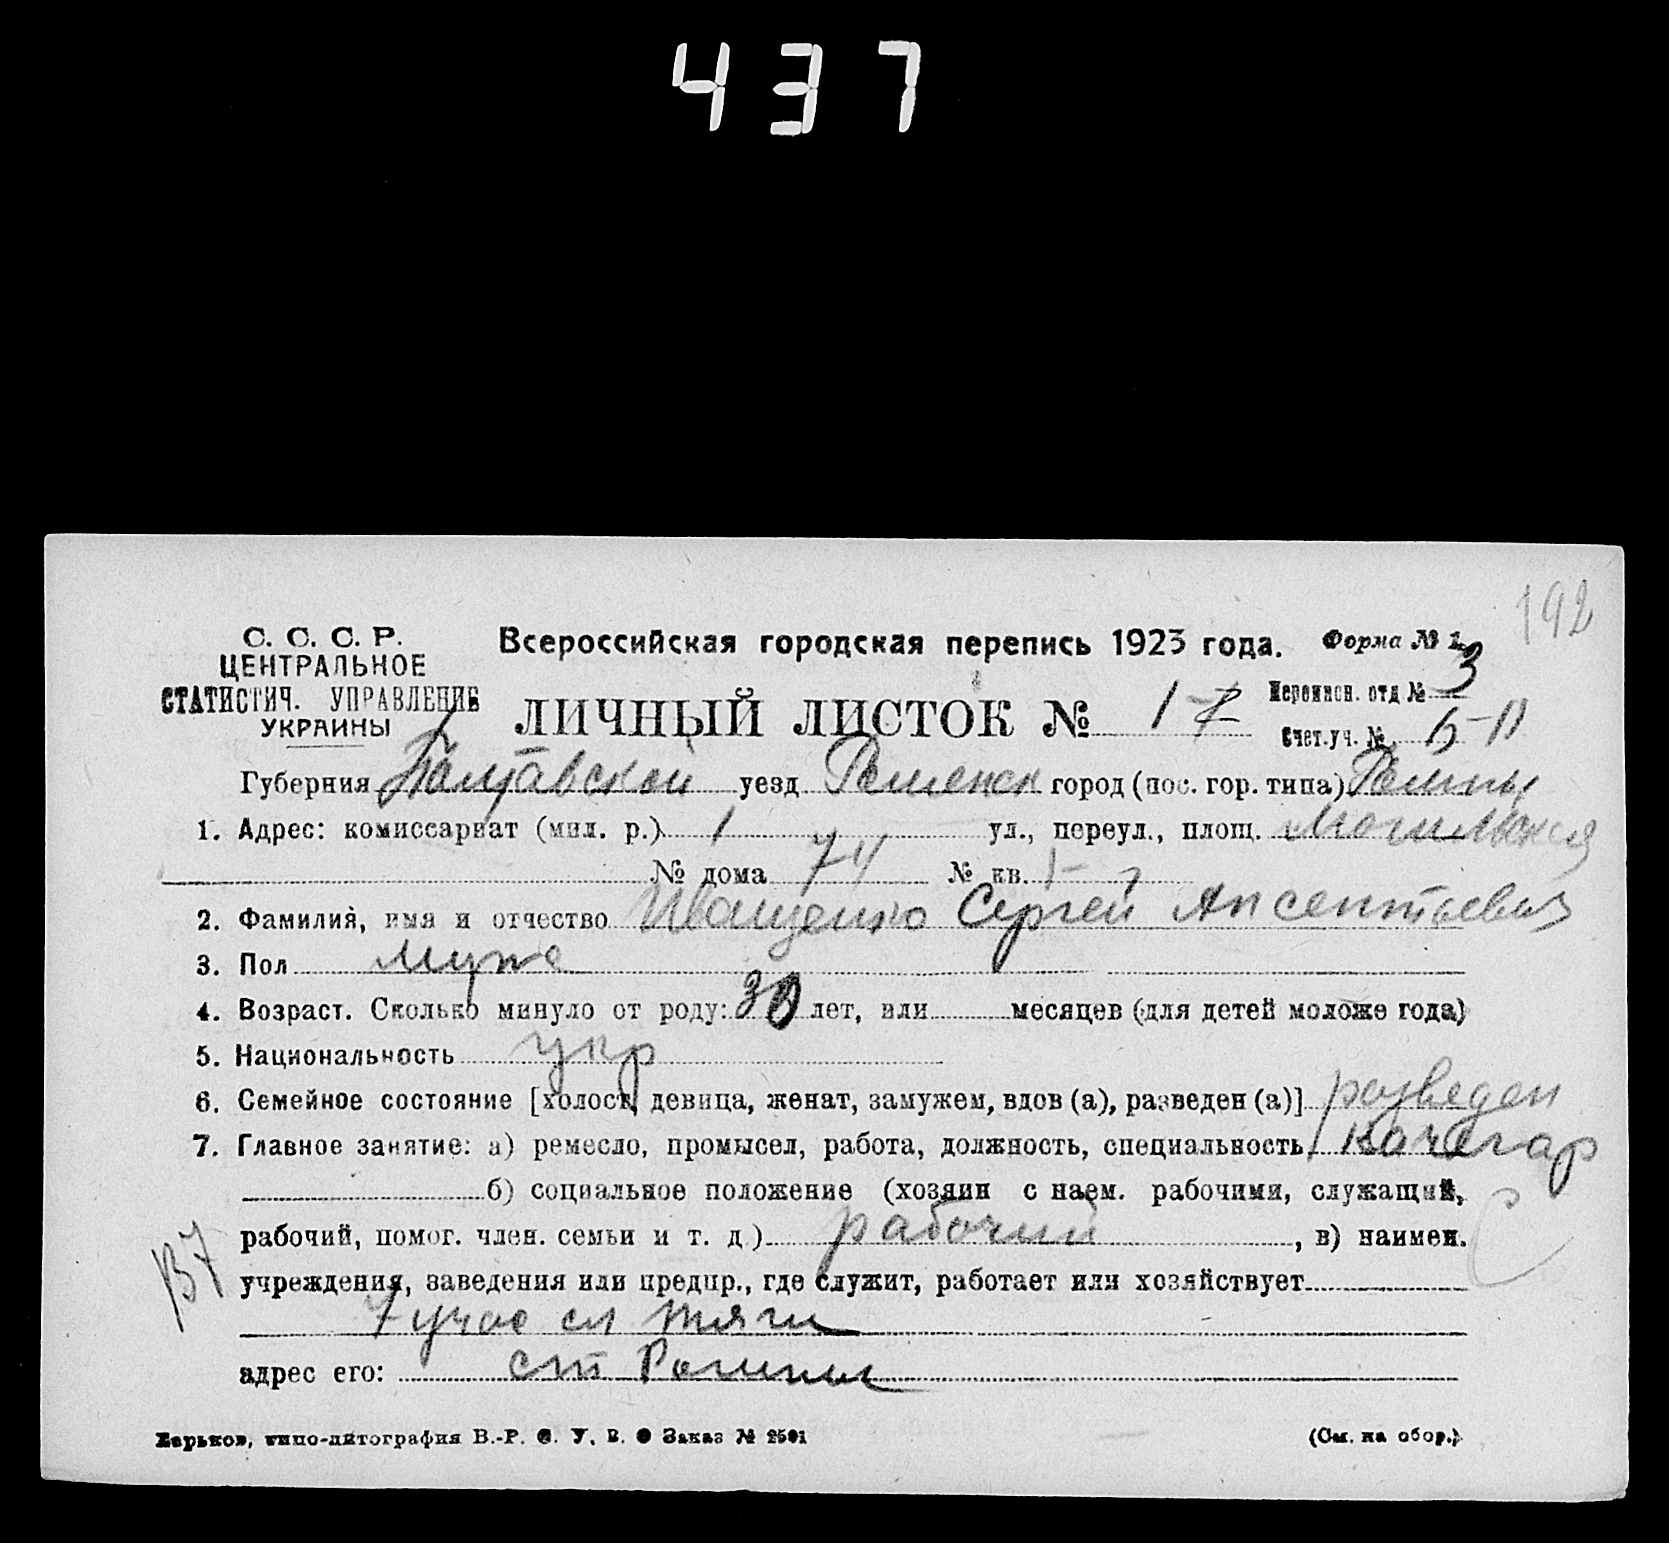 437
192
С. С. С. Р.
ЦЕНТРАЛЬНОЕ
СТАТИСТИЧ. УПРАВЛЕНИЕ
УКРАИНЫ
Всероссийская городская перепись 1923 года. Форма № 1
ЛИЧНЫЙ ЛИСТОК № 17
Переписн. отд № 3
Счет.уч. №
Губерния Полтавской уезд Роменск город (пос. гор. типа) Ромны
1. Адрес: комиссариат (мил. р.) 1 ул., переул., площ.
№ дома 74 № кв.
2. Фамилия, имя и отчество Иващенко Сергей Аксентьевич
3. Пол муже
4. Возраст. Сколько минуло от роду: 30 лет, или месяцев (для детей моложе года)
5. Национальность укр
6. Семейное состояние [холост, девица, женат, замужем, вдов (а), разведен (а)] розведен
7. Главное занятие: а) ремесло, промысел, работа, должность, специальность кочегар
б) социальное положение (хозяин с наем. рабочими, служащий,
рабочий, помог. член. семьи и т. д.) рабочий, в) наимен.
В7
учреждения, заведения или предпр., где служит, работает или хозяйствует
7 учас сл тяги
адрес его: ст Ромны
Харьков, типо-литография В.-Р. У. В. Заказ № 2501
(См. на обор.)